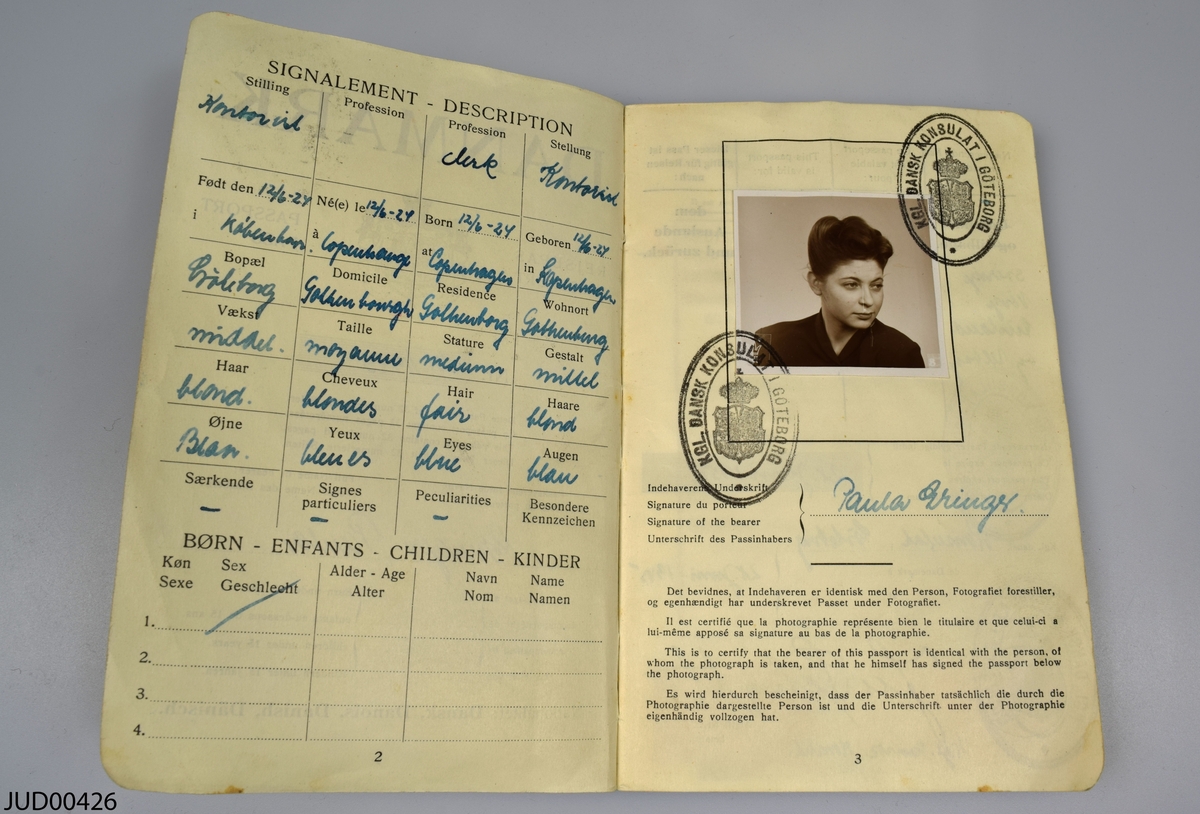 SIGNALEMENT - DESCRIPTION
Stilling Profession Profession Stellung
Kontorist clerk Kontorist
Født den 12/6-24 Né(e) le 12/6-24 Born 12/6-24 Geboren 12/6-24
i København. à Copenhauge at Copenhagen in Kopenhagen
Bopæl Domicile Residence Wohnort
Gothenbourgh Gothenborg Gothenberg
Vækst Taille Stature Gestalt
middel. moyanne medium mittel
Haar Cheveux Hair Haare
blond. blondes fair blond
Øjne Yeux Eyes Augen
Blaa. bleues blue blau
Særkende Signes particuliers Peculiarities Besondere Kennzeichen
— — —
BØRN - ENFANTS - CHILDREN - KINDER
Køn Sex Alder - Age Navn Name
Sexe Geschlecht Alter Nom Namen
1.
2.
3.
4.
2
KGL. DANSK KONSULAT I GÖTEBORG
KGL. DANSK KONSULAT I GÖTEBORG
Indehaverens Underskrift
Signature du porteur
Signature of the bearer
Unterschrift des Passinhabers
Paula
Det bevidnes, at Indehaveren er identisk med den Person, Fotografiet forestiller,
og egenhændigt har underskrevet Passet under Fotografiet.
Il est certifié que la photographie représente bien le titulaire et que celui-ci a
lui-même apposé sa signature au bas de la photographie.
This is to certify that the bearer of this passport is identical with the person, of
whom the photograph is taken, and that he himself has signed the passport below
the photograph.
Es wird hierdurch bescheinigt, dass der Passinhaber tatsächlich die durch die
Photographie dargestellte Person ist und die Unterschrift unter der Photographie
eigenhändig vollzogen hat.
3
JUD00426